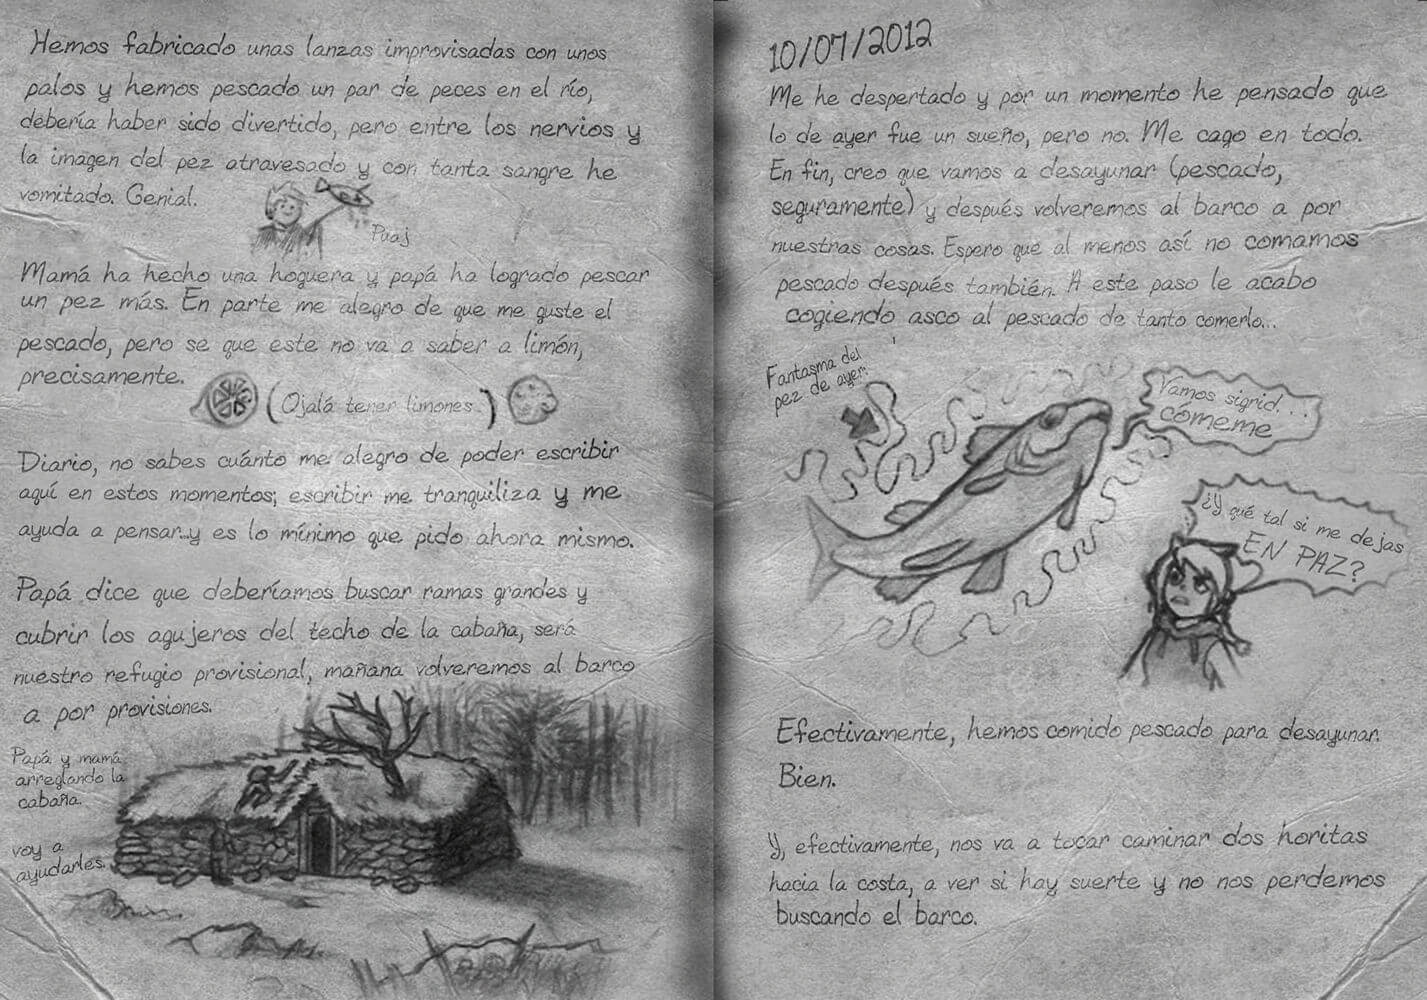 Hemos fabricado unas lanzas improvisadas con unos
palos y hemos pescado un par de peces en el río,
debería haber sido divertido, pero entre los nervios y
la imagen del pez atravesado y con tanta sangre he
vomitado. Genial.
Puaj
Mamá ha hecho una hoguera y papá ha logrado pescar
un pez más. En parte me alegro de que me guste el
pescado, pero se que este no va a saber a limón,
precisamente.
(Ojalá tener limones.)
Diario, no sabes cuánto me alegro de poder escribir
aquí en estos momentos; escribir me tranquiliza y me
ayuda a pensar...y es lo mínimo que pido ahora mismo.
Papá dice que deberíamos buscar ramas grandes y
cubrir los agujeros del techo de la cabaña, será
nuestro refugio provisional, mañana volveremos al barco
a por provisiones.
Papá y mamá
arreglando la
cabaña.
voy a
ayudarles.
10/07/2012
Me he despertado y por un momento he pensado que
lo de ayer fue un sueño, pero no. Me cago en todo.
En fin, creo que vamos a desayunar (pescado,
seguramente) y después volveremos al barco a por
nuestras cosas. Espero que al menos así no comamos
pescado después también. A este paso le acabo
cogiendo asco al pescado de tanto comerlo...
Fantasma del
pez de ayer.
Vamos sigrid. . .
CÓMEME
¿Y qué tal si me dejas
EN PAZ?
Efectivamente, hemos comido pescado para desayunar.
Bien.
Y, efectivamente, nos va a tocar caminar dos horitas
hacia la costa, a ver si hay suerte y no nos perdemos
buscando el barco.